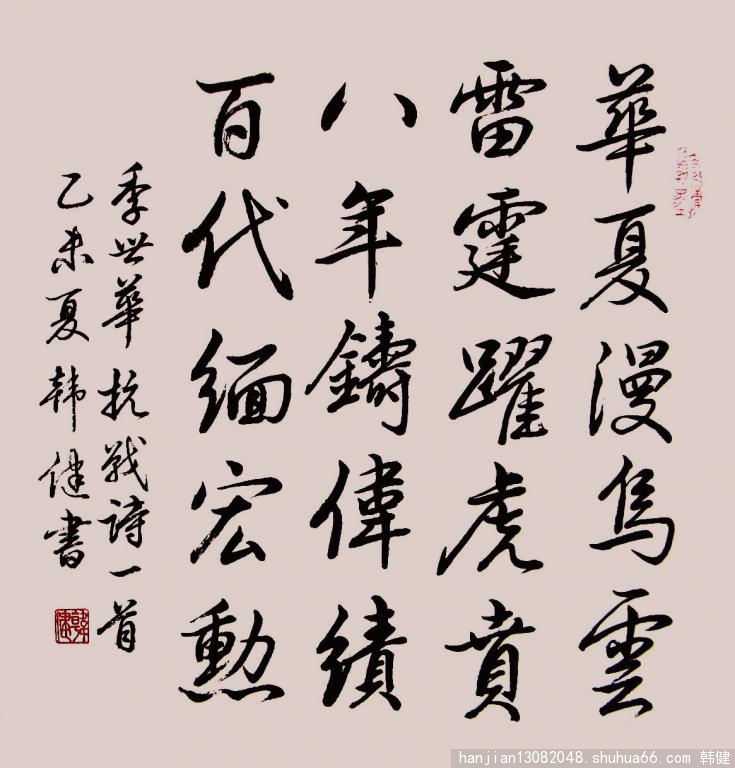 華夏漫烏雲
雷霆躍虎賁
八年鑄偉績
百代緬宏勳
季世華抗戰诗一首
乙未夏韩健書
hanjian13082048.shuhua66.com 韩健